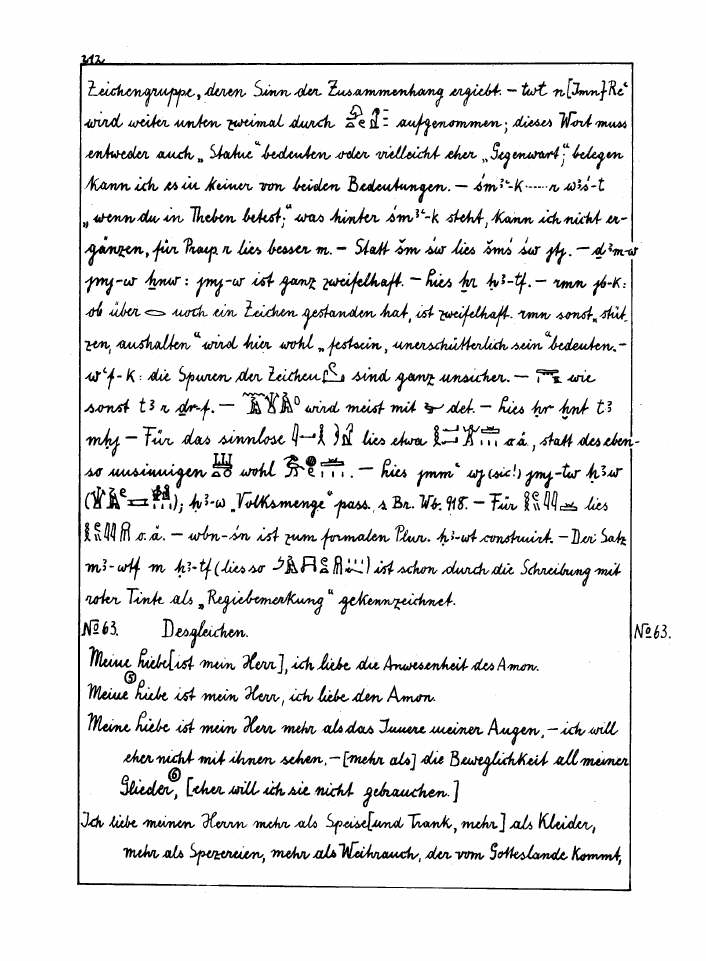 212
Zeichengruppe, deren Sinn der Zusammenhang ergiebt. – twt n [Jmn]-Reꜥ
wird weiter unten zweimal durch aufgenommen; dieses Wort muss
entweder auch „Statue“ bedeuten oder vielleicht eher „Gegenwart“; belegen
kann ich es in keiner von beiden Bedeutungen. – śmꜣꜥ-k ...... r wꜣś-t
„wenn du in Theben betest;“ was hinter śmꜣꜥ-k steht, kann ich nicht er-
gänzen, für Praep. r lies besser m. – Statt šm św lies šmś św jtj. – ḏꜣm-w
jmj-w ẖnw: jmj-w ist ganz zweifelhaft. – Lies ẖr ḥꜣ-tf. – rmn jb-k:
ob über noch ein Zeichen gestanden hat, ist zweifelhaft. rmn sonst „stüt-
zen, aushalten“ wird hier wohl „festsein, unerschütterlich sein“ bedeuten. –
wꜥf-k: die Spuren der Zeichen sind ganz unsicher. – wie
sonst tꜣ r ḏr-f. – wird meist mit det. – Lies ḥr ẖnt tꜣ
mḥj – Für das sinnlose lies etwa o.ä., statt des eben-
so unsinnigen wohl . – Lies jmmꜥ wj (sic!) jmj-tw ḥꜣw
( ); ḥꜣ-w „Volksmenge“ pass. s. Br. Wb. 918. – Für lies
o.ä. – wbn-śn ist zum formalen Plur. ḥꜣ-wt construirt. – Der Satz
mꜣ-wtf m ḥꜣ-tf (lies so ) ist schon durch die Schreibung mit
roter Tinte als „Regiebemerkung“ gekennzeichnet.
No 63. Desgleichen. No 63.
Meine Liebe [ist mein Herr], ich liebe die Anwesenheit des Amon.
⑤
Meine Liebe ist mein Herr, ich liebe den Amon.
Meine Liebe ist mein Herr mehr als das Innere meiner Augen, – ich will
eher nicht mit ihnen sehen, – [mehr als] die Beweglichkeit all meiner
⑥
Glieder, [eher will ich sie nicht gebrauchen.]
Ich liebe meinen Herrn mehr als Speise [und Trank, mehr] als Kleider,
mehr als Spezereien, mehr als Weihrauch, der vom Gotteslande kommt,